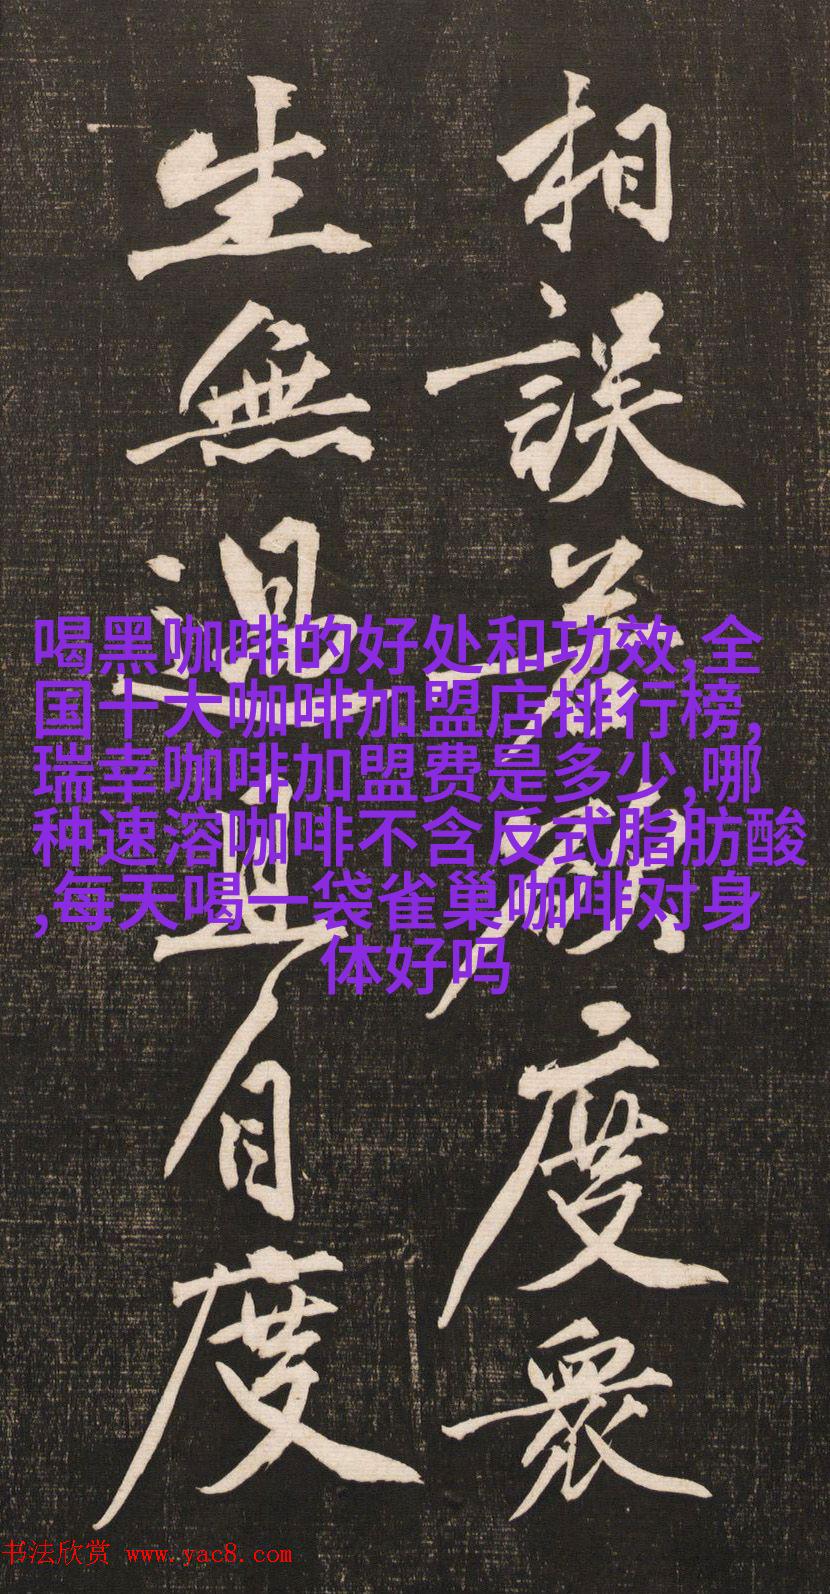 相誤若願度衆
生無過且自度
喝黑咖啡的好处和功效,全
国十大咖啡加盟店排行榜,
瑞幸咖啡加盟费是多少,哪
种速溶咖啡不含反式脂肪酸
,每天喝一袋雀巢咖啡对身
体好吗
书法欣赏 www.yac8.com